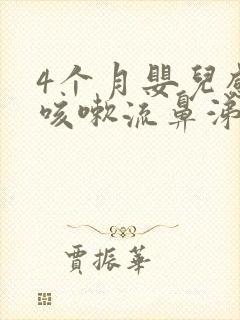 4个月嬰兒感
咳嗽流鼻涕
賈振華